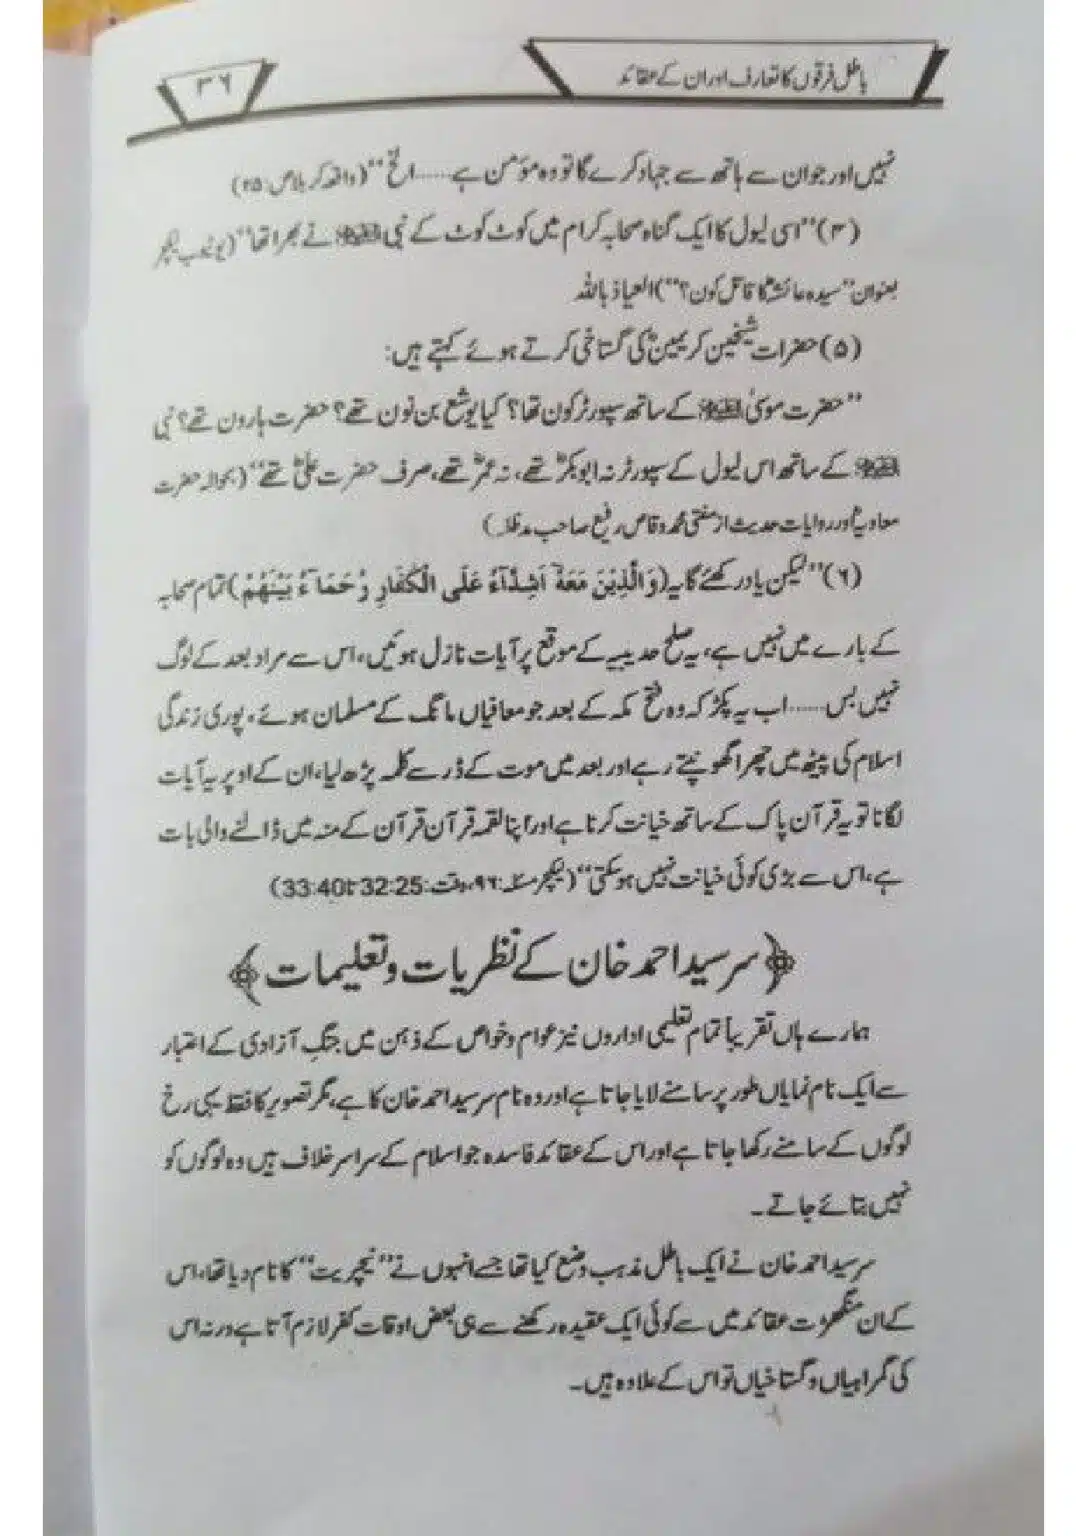 باطل فرقوں کا تعارف اور ان کے عقائد
۳۶
نہیں اور جو ان سے ہاتھ سے جہاد کرے گا تو وہ مؤمن ہے......الخ" (واقعہ کربلا ص:۲۵)
(۴) "اسی لیول کا ایک گناہ صحابہ کرام میں کوٹ کوٹ کے نبی ﷺ نے بھرا تھا" (یوٹیوب لیکچر
بعنوان "سیدہ عائشہؓ کا قاتل کون؟") العیاذ باللہ
(۵) حضرات شیخین کریمینؓ کی گستاخی کرتے ہوئے کہتے ہیں:
"حضرت موسیٰ کے ساتھ سپورٹر کون تھا؟ کیا یوشع بن نون تھے؟ حضرت ہارون تھے؟ نبی
ﷺ کے ساتھ اس لیول کے سپورٹر نہ ابوبکرؓ تھے، نہ عمرؓ تھے، صرف حضرت علیؓ تھے" (بحوالہ حضرت
معاویہؓ اور روایات حدیث از مفتی محمد وقاص رفیع صاحب مدظلہ)
(۶) "لیکن یاد رکھئے گا یہ (وَالَّذِیْنَ مَعَهٗ اَشِدَّآءُ عَلَی الْکُفَّارِ رُحَمَآءُ بَیْنَهُمْ) تمام صحابہ
کے بارے میں نہیں ہے، یہ صلح حدیبیہ کے موقع پر آیات نازل ہوئیں، اس سے مراد بعد کے لوگ
نہیں بس......اب یہ پکڑ کہ وہ فتح مکہ کے بعد جو معافیاں مانگ کے مسلمان ہوئے، پوری زندگی
اسلام کی پیٹھ میں چھرا گھونپتے رہے اور بعد میں موت کے ڈر سے کلمہ پڑھ لیا، ان کے اوپر یہ آیات
لگانا تو یہ قرآن پاک کے ساتھ خیانت کرنا ہے اور اپنا لقمہ قرآن قرآن کے منہ میں ڈالنے والی بات
ہے، اس سے بڑی کوئی خیانت نہیں ہو سکتی" (لیکچر مسئلہ:۹۶، وقت:32:25 تا 33:40)
﴿سرسید احمد خان کے نظریات و تعلیمات﴾
ہمارے ہاں تقریباً تمام تعلیمی اداروں نیز عوام و خواص کے ذہن میں جنگِ آزادی کے اعتبار
سے ایک نام نمایاں طور پر سامنے لایا جاتا ہے اور وہ نام سرسید احمد خان کا ہے، مگر تصویر کا فقط یہی رخ
لوگوں کے سامنے رکھا جاتا ہے اور اس کے عقائد فاسدہ جو اسلام کے سراسر خلاف ہیں وہ لوگوں کو
نہیں بتائے جاتے۔
سرسید احمد خان نے ایک باطل مذہب وضع کیا تھا جسے انہوں نے "نیچریت" کا نام دیا تھا، اس
کے ان منگھڑت عقائد میں سے کوئی ایک عقیدہ رکھنے سے ہی بعض اوقات کفر لازم آتا ہے ورنہ اس
کی گمراہیاں و گستاخیاں تو اس کے علاوہ ہیں۔